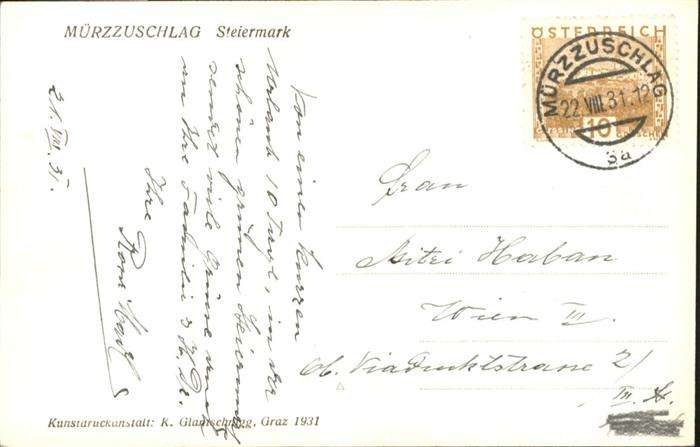 MÜRZZUSCHLAG Steiermark
ÖSTERREICH
MÜRZZUSCHLAG
22.VIII.31.12
3a
10
Von einem kurzen
Urlaub 10 Tage, in der
schönen grünen Steiermark
sendet viele Grüße auch
an Ihre Familie
Ihre
21.VIII.31.
Frau
Mitzi Haban
Wien III.
Ob. Viaduktstrasse 2/
III.
Kunstdruckanstalt: K. Glantschnigg, Graz 1931